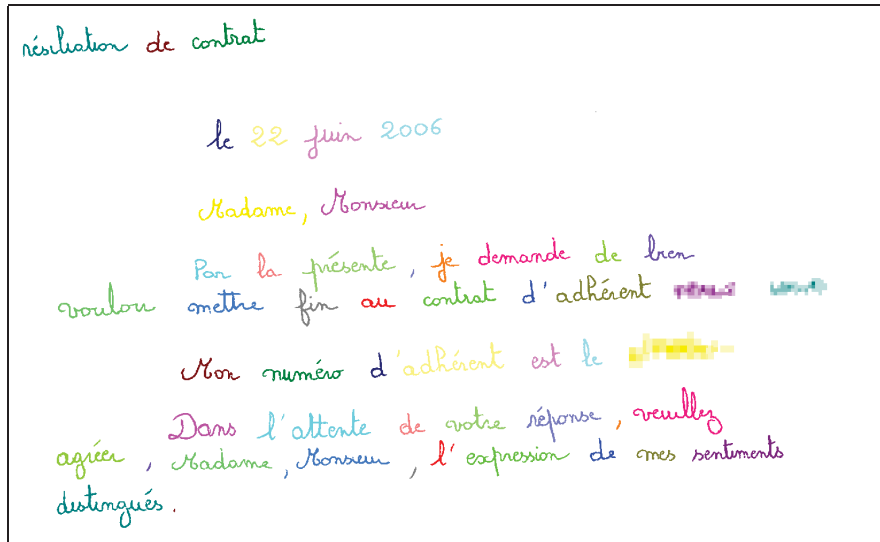 résiliation de contrat
le 22 juin 2006
Madame, Monsieur
Par la présente, je demande de bien
vouloir mettre fin au contrat d'adhérent
Mon numéro d'adhérent est le
Dans l'attente de votre réponse, veuillez
agréer, Madame, Monsieur, l'expression de mes sentiments
distingués.